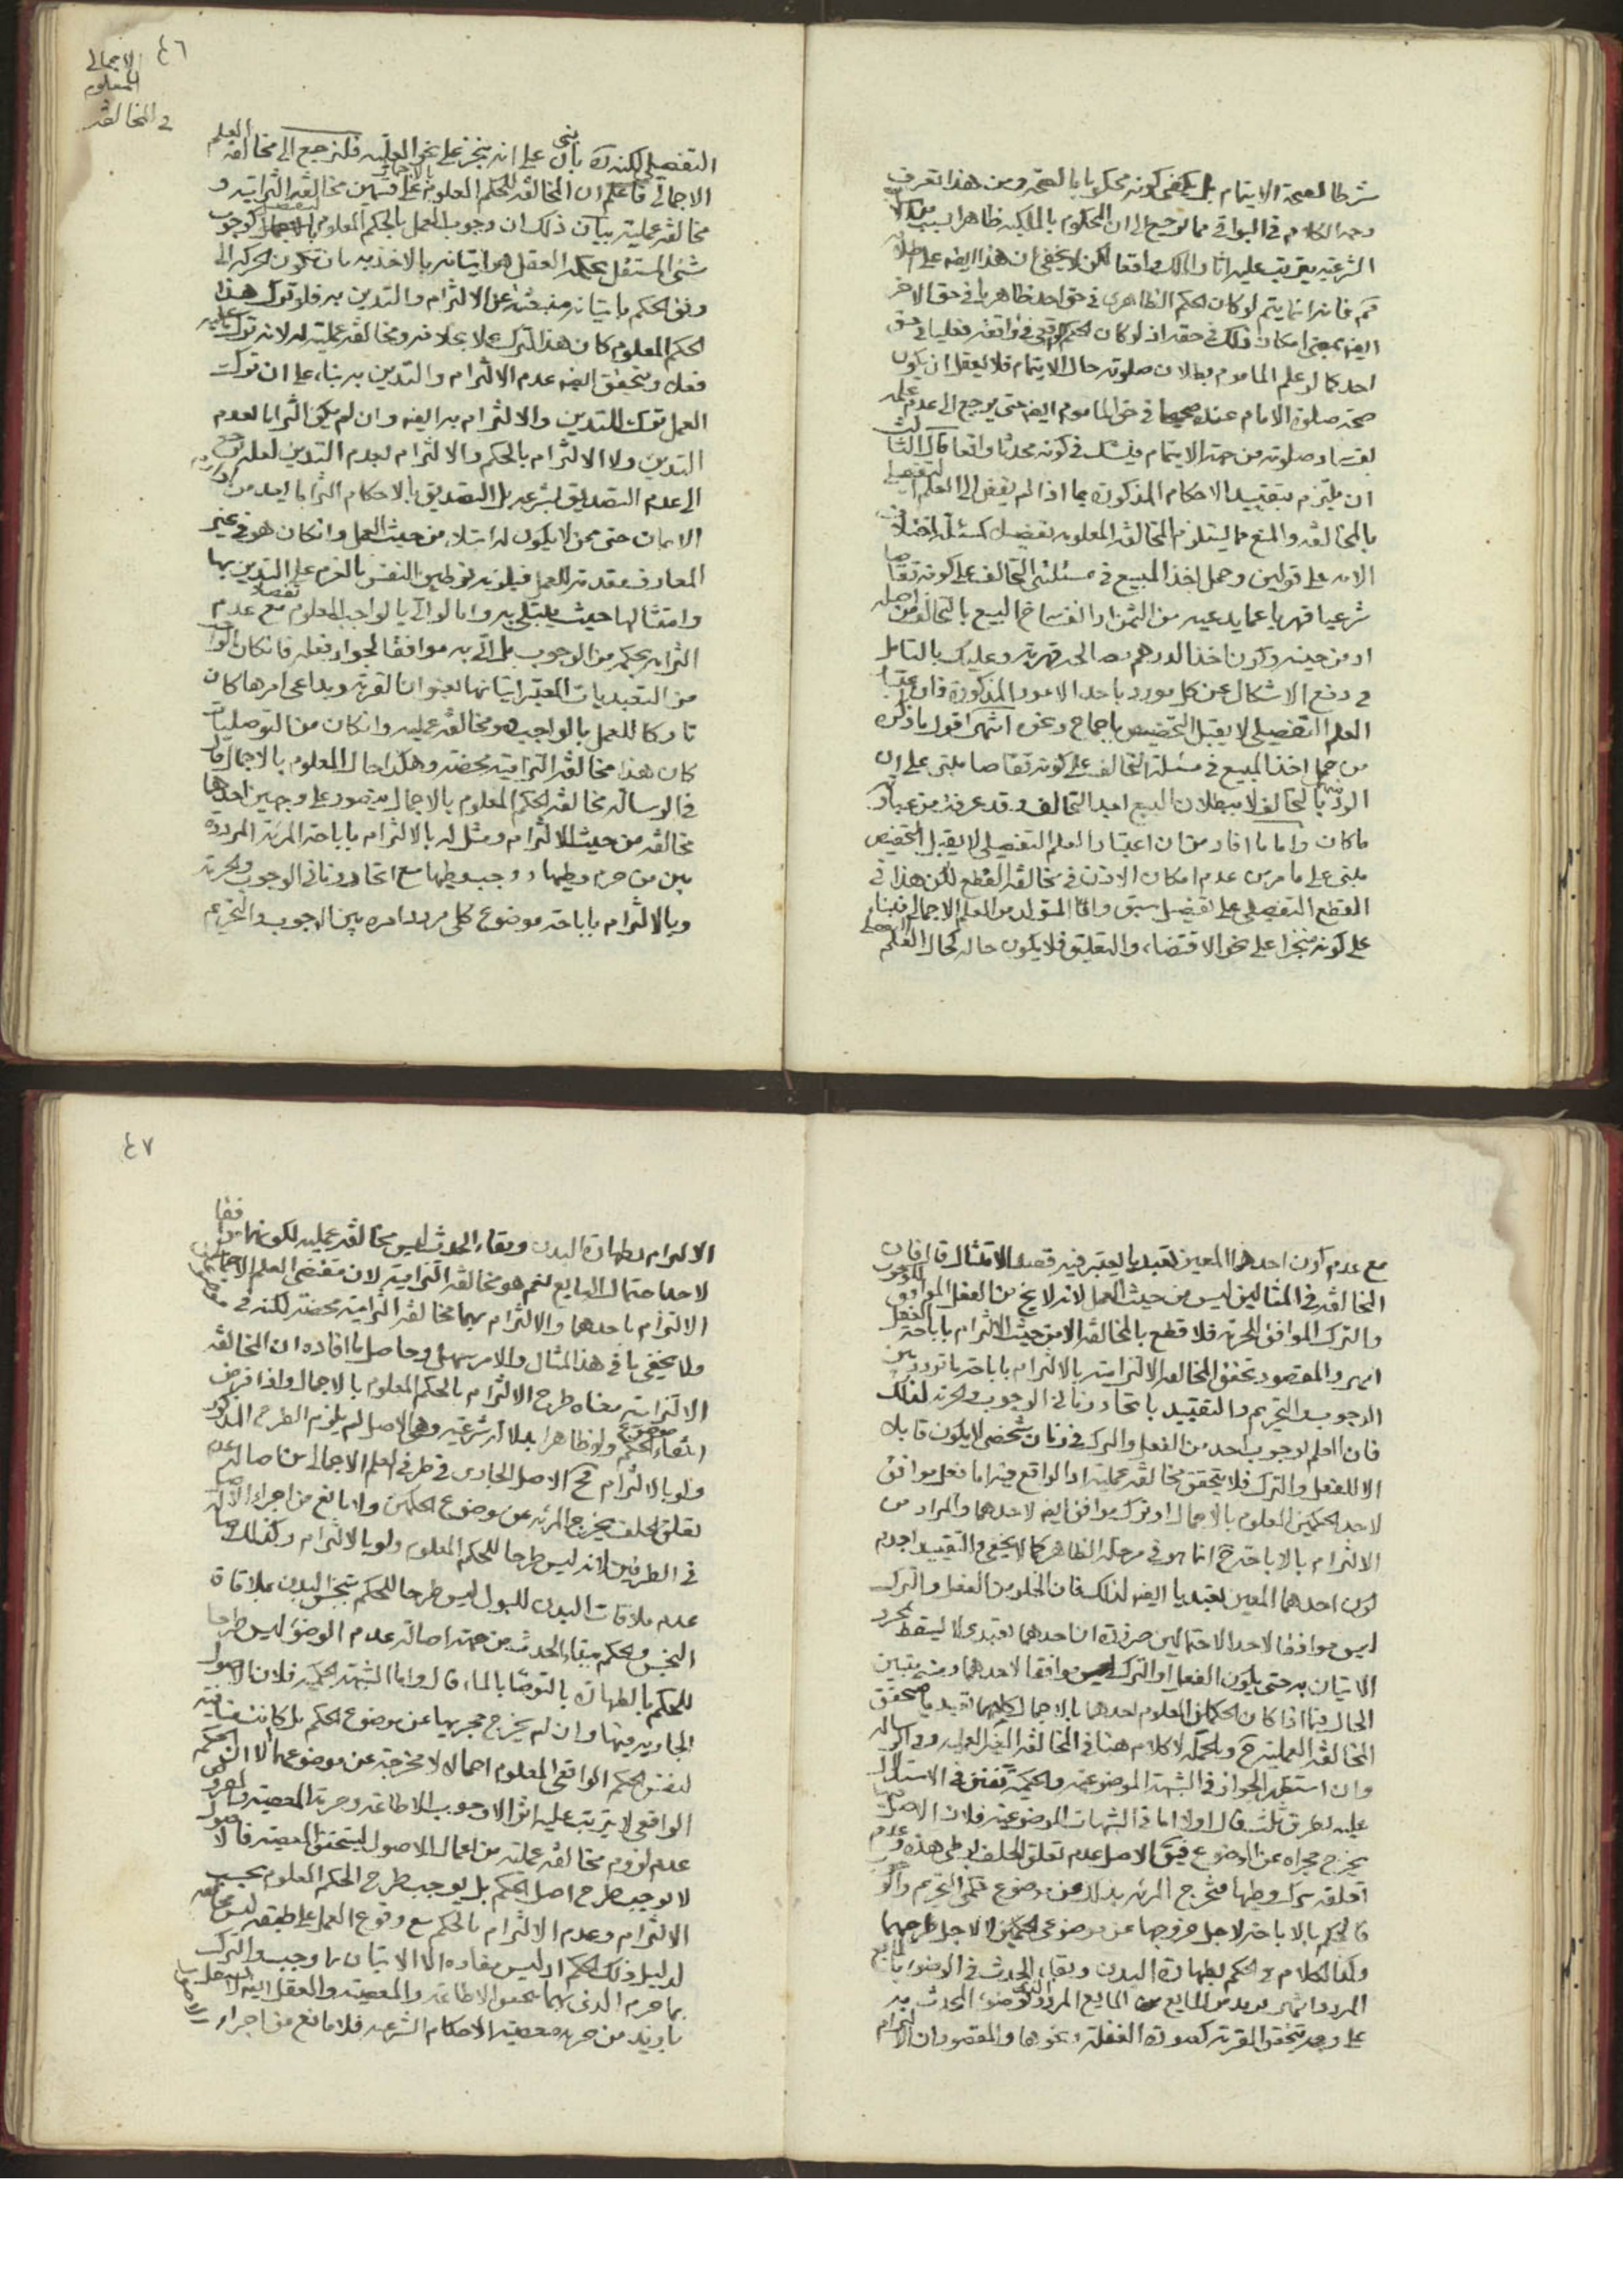 شرطا لصحة الايتمام بل يكفى كونه محكوما بالصحة ومن هذا تعرف
وجه الكلام في البواقي مما يرجع الى ان المحكوم بالملكية ظاهرا بسبب
الشرعية يترتب عليه اثار المالك واقعا لكن لا يخفى ان هذا ايضه على اطلاقه
فانه انما يتم لو كان الحكم الظاهرى في حق احد ظاهريا في حق الاخر
ايضه بمعنى امكان ذلك في حقه اذ لو كان الحكم الواقعى فى واقعة فعليا في حق
احد كما لو علم الماموم ببطلان صلوته حال الايتمام فلا يعقل ان يكون
صحة صلوة الامام عنده في حق الماموم ايضه حتى يرجع الى عدم علمه
بفساد صلوته من جهة الايتمام فيشك فى كونه محدثا واقعا قال الثالث
ان يلتزم بتقييد الاحكام المذكورة بما اذا لم يفض الى العلم التفصيلي
بالمخالفة والمنع مما يستلزم المخالفة المعلومة تفصيلا كمسئلة اختلاف
الامة على قولين وحمل اخذ المبيع في مسئلتى التحالف على كونه تقاصا
شرعيا قهريا عما يدعيه من الثمن او انفساخ البيع بالتحالف من اصله
او من حينه وكون اخذ الدرهم مصالحة قهرية وعليك بالتامل
في دفع الاشكال عن كل مورد باحد الامور المذكورة فان اعتبار
العلم التفصيلي لا يقبل التخصيص باجماع ونحوه انتهى اقول ما ذكره
من حمل اخذ المبيع في مسئلة التحالف على كونه تقاصا مبنى على ان
الرد بالتحالف لا ببطلان البيع بعد التحالف وقد عرفت من عباراته
ما كان واما ما افاد من ان اعتبار العلم التفصيلي لا يقبل التخصيص
مبنى على ما مر من عدم امكان الاذن في مخالفة القطع لكن هذا في
القطع التفصيلي على تفصيل سبق واما المتولد من العلم الاجمالي فبناء
على كونه منجزا على نحو الاقتضاء والتعليق فلا يكون حاله كحال العلم
٤٦
الاجمالى
المعلوم
في المخالفة
التفصيلي لكنه بان بنى على انه ينجز على نحو العلية فلنرجع الى مخالفة العلم
الاجمالي فاعلم ان المخالفة للحكم المعلوم بالاجمال على قسمين مخالفة التزامية و
مخالفة عملية بيان ذلك ان وجوب العمل بالحكم المعلوم بالتفصيل كوجوب
شئ المستقل بحكمه العقل هو ايتانه بالاخذ به بان تكون الحركة الى
وفق الحكم باتيانه منبعثة عن الالتزام والتدين به فلو ترك هذا
الحكم المعلوم كان هذا الترك عملا بخلافه ومخالفة عملية له لانه ترك
فعله ويتحقق ايضه عدم الالتزام والتدين به بناء على ان ترك
العمل ترك للتدين والالتزام به ايضه وان لم يكن التزاما لعدم
التدين ولا الالتزام بالحكم والالتزام بعدم التدين لعله يرجع
الى عدم التصديق بشرعيته بل التصديق بالاحكام التزاما يعد من
الايمان حتى ممن لا يكون له ابتلاء من حيث العمل وان كان هو في غير
المعارف مقدمة للعمل فيلزمه توطين النفس بالعزم على التدين بها
وامتثالها حيث يبتلى به واما لو اتى بالواجب المعلوم تفصيلا مع عدم
التزامه بحكمه من الوجوب بل اتى به موافقا لجواز فعله فان كان الواجب
من التعبديات المعتبر اتيانها بعنوان القربة وبداعى امرها كان
تاركا للعمل بالواجب وهو مخالفة عملية وان كان من التوصليات
كان هذا مخالفة التزامية محضة وهكذا حال المعلوم بالاجمال قال
في الرسالة مخالفة الحكم المعلوم بالاجمال يتصور على وجهين احدهما
مخالفة من حيث الالتزام ومثل له بالالتزام باباحة المرئة المرددة
بين من حرم وطيها ووجب وطيها مع اتحاد زمانى الوجوب والحرمة
وبالالتزام باباحة موضوع كلي مردد امره بين الوجوب والتحريم
مع عدم كون احدهما المعين تعبديا يعتبر فيه قصد الامتثال قال فان
المخالفة في المثالين ليس من حيث العمل لانه لا يخ من الفعل الموافق للوجوب
والترك الموافق للحرمة فلا قطع بالمخالفة الا من حيث الالتزام باباحة الفعل
انتهى والمقصود تحقق المخالفة الالتزامية بالالتزام باباحة ما تردد بين
الوجوب والتحريم والتقييد باتحاد زمانى الوجوب والحرمة لذلك
فان العلم لوجوب احد من الفعل والترك فى زمان شخصى لا يكون قابلا
الا للفعل والترك فلا يتحقق مخالفة عملية اذ الواقع فيه اما فعل موافق
لاحد الحكمين المعلوم بالاجمال او ترك موافق ايضه لاحدهما والمراد من
الالتزام بالاباحة ح انما هو في مرحلة الظاهر كما لا يخفى والتقييد بعدم
كون احدهما المعين تعبديا ايضه لذلك فان الخلو من الفعل والترك
ليس موافقا لاحد الاحتمالين ضرورة ان احدهما تعبدى لا يسقط بمجرد
الاتيان به حتى يكون الفعل او الترك موافقا لاحدهما ومنه يتبين
الحال فيما اذا كان الحكمان المعلوم احدهما بالاجمال كلاهما تعبديا لتحقق
المخالفة العملية ح وبالجملة لا كلام هنا في المخالفة الغير العملية وفي الرسالة
وان استظهر الجواز في الشبهة الموضوعية والحكمية تفنن في الاستدلال
عليه بطرق ثلث قال اولا اما في الشبهات الموضوعية فلان الاصل فيها
يخرج مجراه عن الموضوع فيق الاصل عدم تعلق الحلف بوطى هذه وعدم
تعلقه بترك وطيها فتخرج المرئة بذلك عن موضوع حكمى التحريم والوجوب
فالحكم بالاباحة لاجل خروجها عن موضوعى الحكمين لا لاجل طرحهما
وكذا الكلام في الحكم بطهارة البدن وبقاء الحدث في الوضوء بالمايع
المردد انتهى يريد من المايع المردد الوضوء المحدث به
على وجه يتحقق القربة كصورة الغفلة ونحوها والمقصود ان الالتزام
٤٧
الالتزام بطهارة البدن وبقاء الحدث ليس مخالفة عملية لكونهما موافقا
لاحد احتمال المايع نعم هو مخالفة التزامية لان مقتضى العلم الاجمالي
الالتزام باحدهما والالتزام بهما مخالفة التزامية محضة لكنه في
ولا يخفى ما في هذا المثال والامر سهل وحاصل ما افاده ان المخالفة
الالتزامية معناه طرح الالتزام بالحكم المعلوم بالاجمال واذا فرض
انتفاء الحكم ولو ظاهرا بدلالة شرعية وهى الاصل لم يلزم الطرح المذكور
ولو بالالتزام فح الاصل الجارى فى طرفى العلم الاجمالي من اصالة عدم
تعلق الحلف يخرج المرئة عن موضوع الحكمين ولا مانع من اجراء الاصالة
في الطرفين لانه ليس طرحا للحكم المعلوم ولو بالالتزام وكذلك اصالة
عدم ملاقات البدن للبول ليس طرحا للحكم بتنجس البدن بملاقاة
النجس والحكم ببقاء الحدث من جهة اصالة عدم الوضوء ليس طرحا
للحكم بالطهارة بالتوضا بالماء قال واما الشبهة الحكمية فلان الاصول
الجارية فيها وان لم يخرج مجريها عن موضوع الحكم بل كانت منافية
لنفس الحكم الواقعى المعلوم اجمالا لا مخرجة عن موضوعها الا ان الحكم
الواقعى لا يترتب عليه اثر الا وجوب الاطاعة وحرمة المعصية والمفروض
عدم لزوم مخالفة عملية من اعمال الاصول ليتحقق المعصية فالاصول
لا يوجب طرح اصل الحكم بل يوجب طرح الحكم المعلوم بحسب
الالتزام وعدم الالتزام بالحكم مع وقوع العمل على طبقه ليس مخالفة
لدليل ذلك الحكم اذ ليس مفاده الا الاتيان بما وجب والترك
بما حرم الذى بهما تحقق الاطاعة والمعصية والعقل ايضه لا يحكم
بازيد من حرمة معصية الاحكام الشرعية فلا مانع من اجراء
الاصول